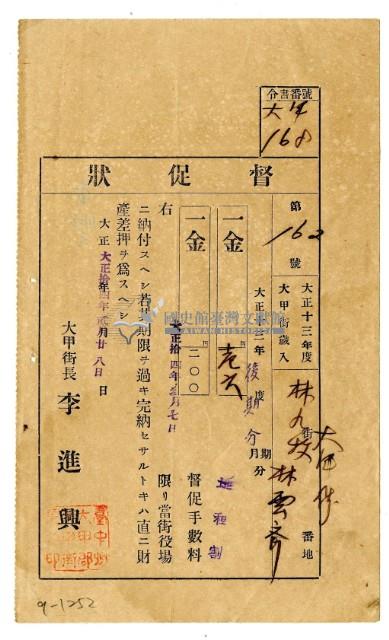 令書番號
大甲
168
督促狀
第 162 號
大正十三年度
大甲街歲入
大正十三年度
後期分
期
月
分
番地
林雲齋
一金
一金
二〇〇
督促手數料
右
大正拾四年 月七日
限リ當街役場
ニ納付スヘシ若其期限ヲ過キ完納セサルトキハ直ニ財
產差押ヲ爲スヘシ
大正拾四年 月廿八日
大甲街長 李進興
國史館臺灣文獻館
TAIWAN HISTORICA
9-1252